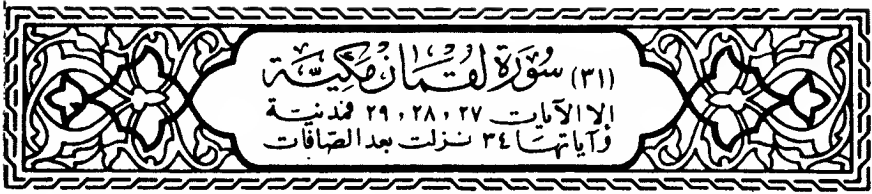 (٣١) سُورَة لقمَان مَكِيَّة
إلا الآيات ٢٧ ، ٢٨ ، ٢٩ فمدنية
وآياتها ٣٤ نزلت بعد الصّافات